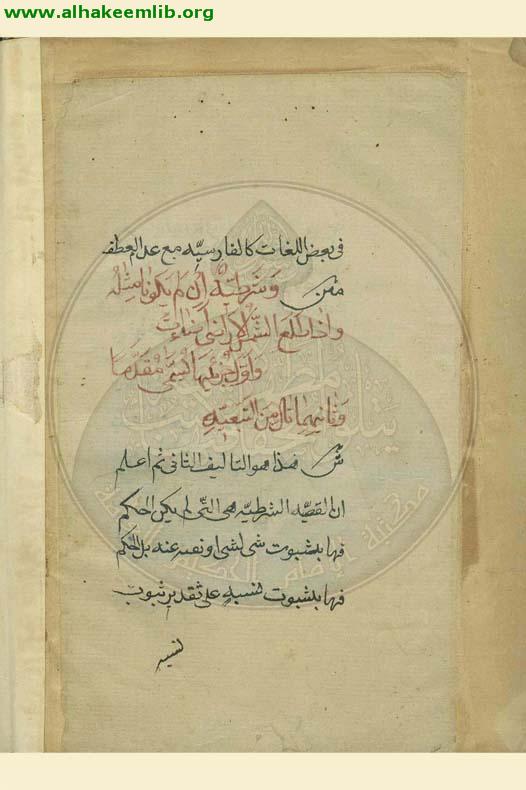 www.alhakeemlib.org
في بعض اللغات كالفارسيّه مع عدم العطف
متن وشرطية إن لم يكونا مثله
وإذا طلع الشمس الأرض أضاءت
وأول جزئيها يسمى مقدما
وثانيهما تال من التبعيه
ش هذا هو التاليف الثاني ثم اعلم
ان القضيه الشرطيه هي التي لم يكن الحكم
فيها بثبوت شي لشي او نفيه عنه بل الحكم
فيها بثبوت نسبه على تقدير ثبوت